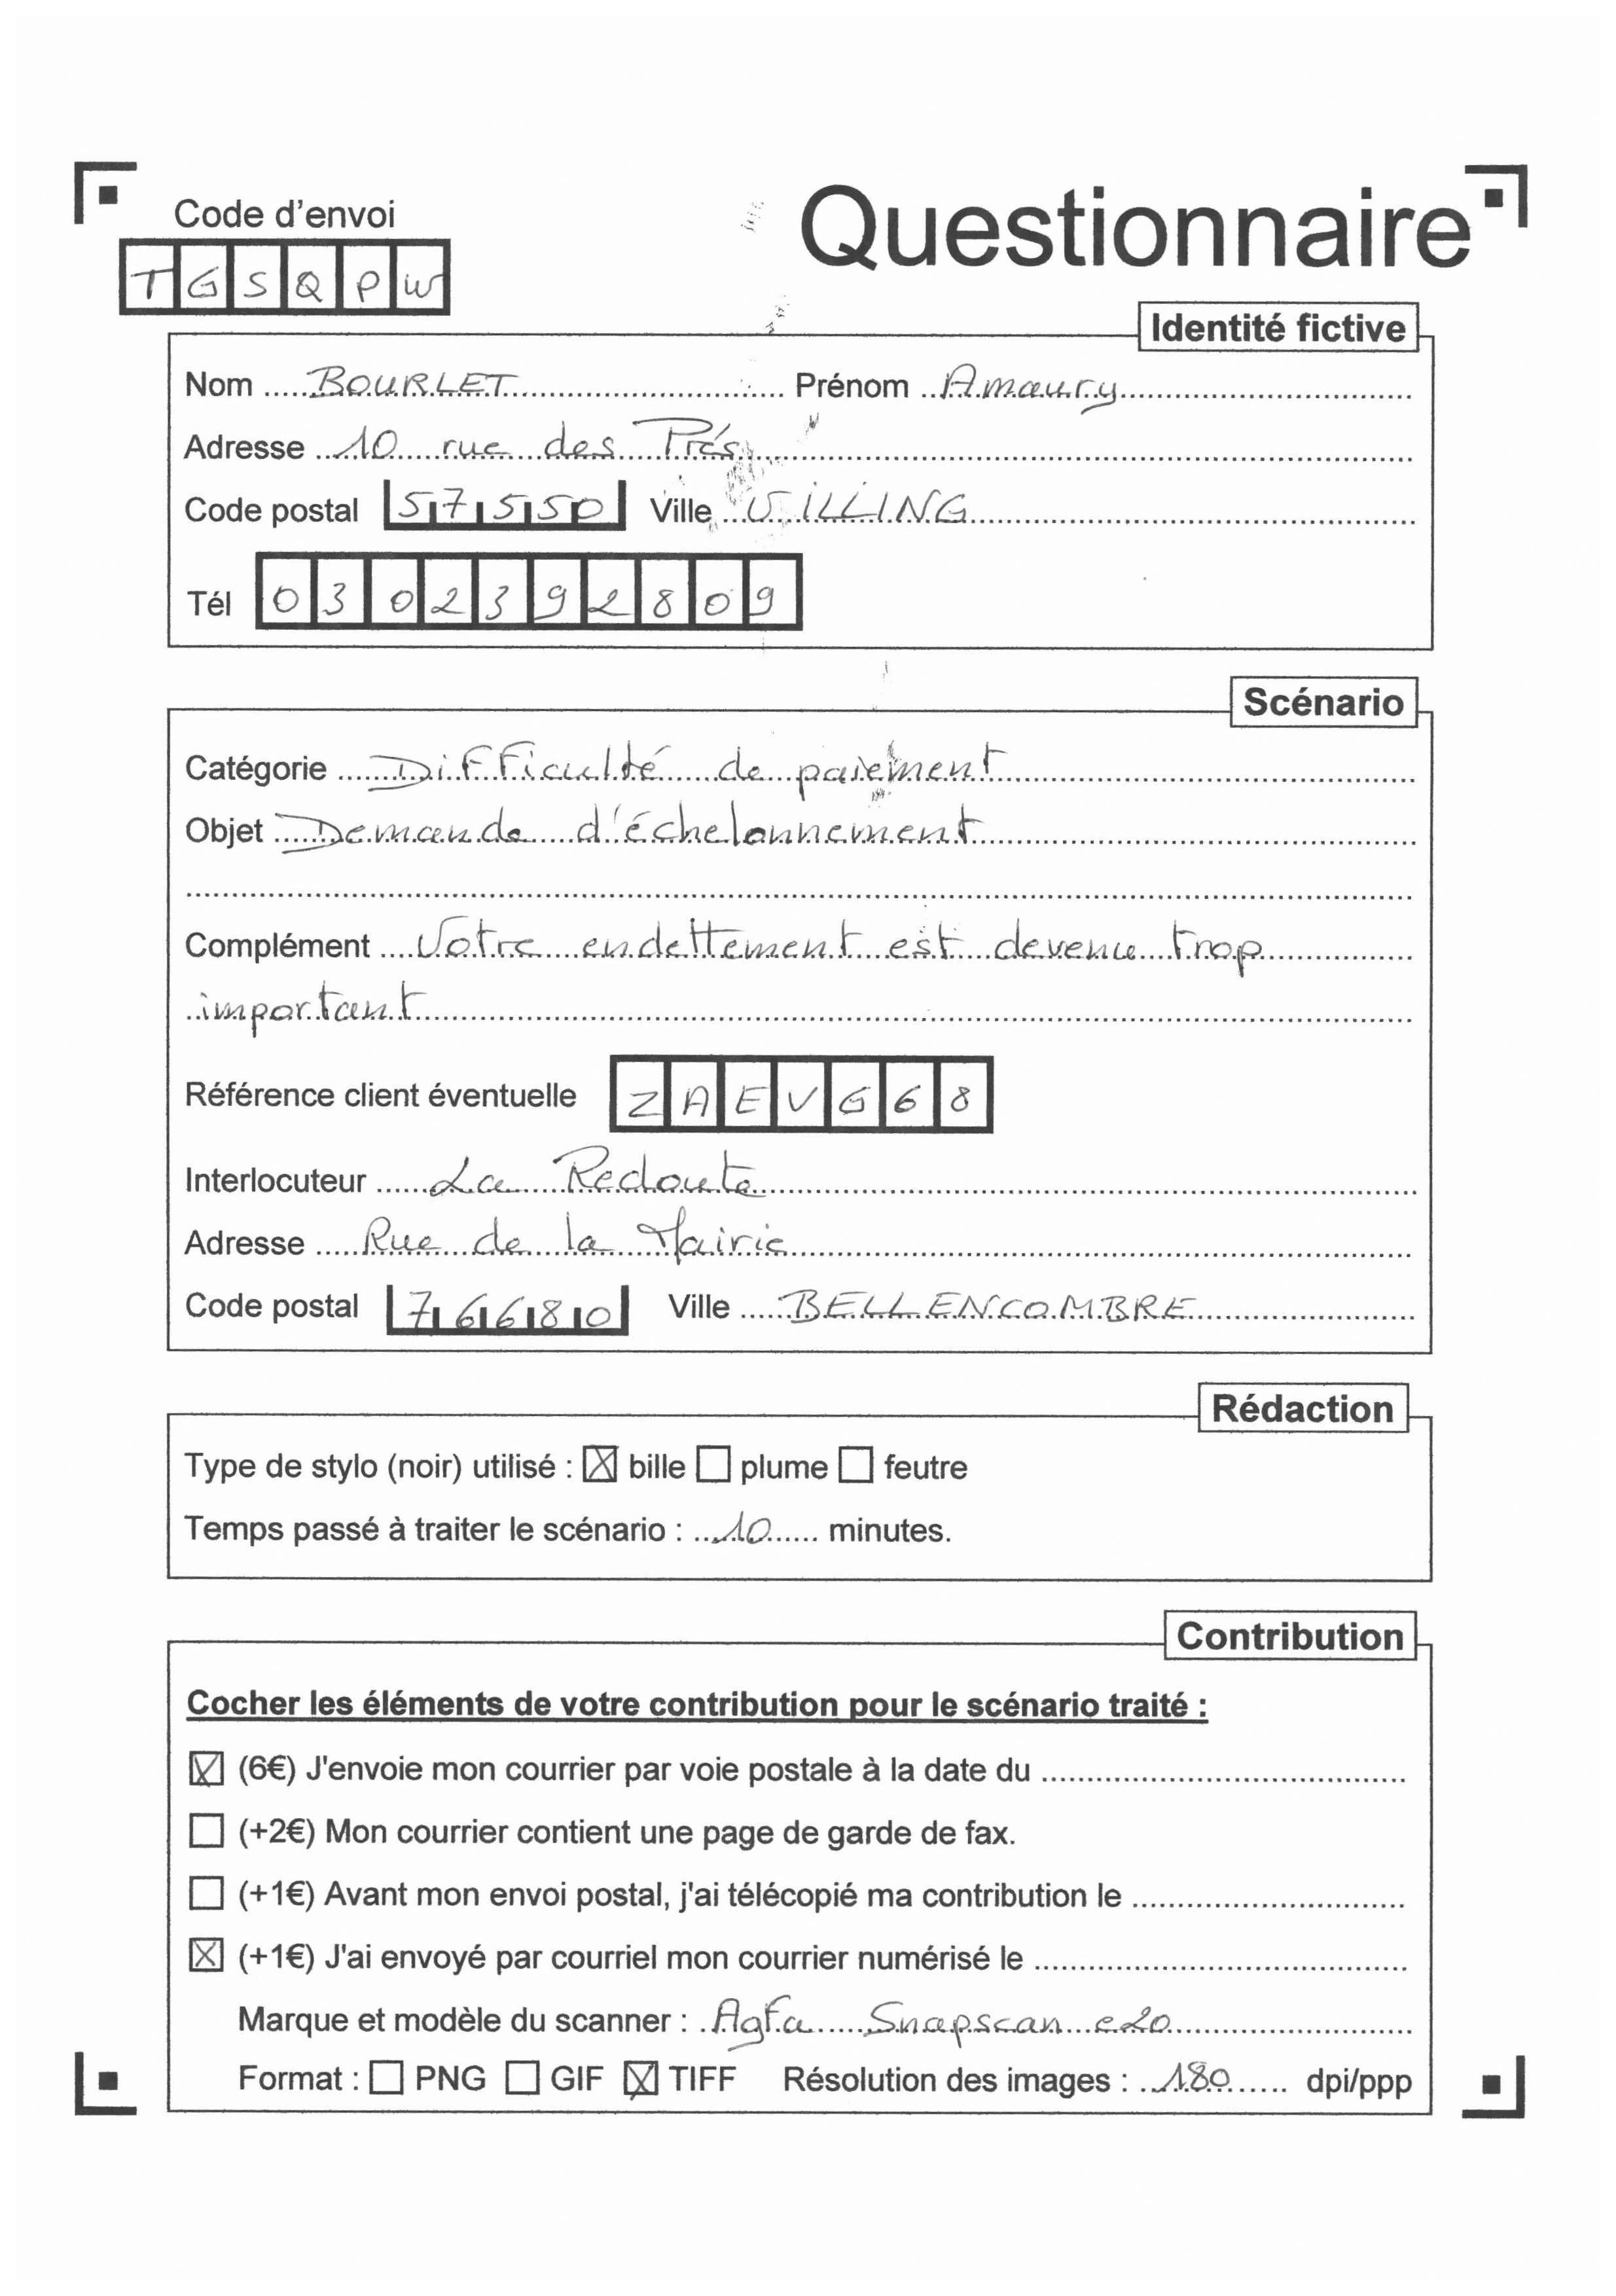 Code d'envoi
Questionnaire
TGSQPW
Identité fictive
Nom BOURLET Prénom Amaury
Adresse 10 rue des Prés
Code postal 57550 Ville VILLING
Tél 0302392809
Scénario
Catégorie Difficulté de paiement
Objet Demande d'échelonnement
Complément Votre endettement est devenu trop
important
Référence client éventuelle ZAEVG68
Interlocuteur La Redoute
Adresse Rue de la Mairie
Code postal 76680 Ville BELLENCOMBRE
Rédaction
Type de stylo (noir) utilisé : ☒ bille ☐ plume ☐ feutre
Temps passé à traiter le scénario : 10 minutes.
Contribution
Cocher les éléments de votre contribution pour le scénario traité :
☒ (6€) J'envoie mon courrier par voie postale à la date du
☐ (+2€) Mon courrier contient une page de garde de fax.
☐ (+1€) Avant mon envoi postal, j'ai télécopié ma contribution le
☒ (+1€) J'ai envoyé par courriel mon courrier numérisé le
Marque et modèle du scanner : Agfa Snapscan e20
Format : ☐ PNG ☐ GIF ☒ TIFF Résolution des images : 180 dpi/ppp